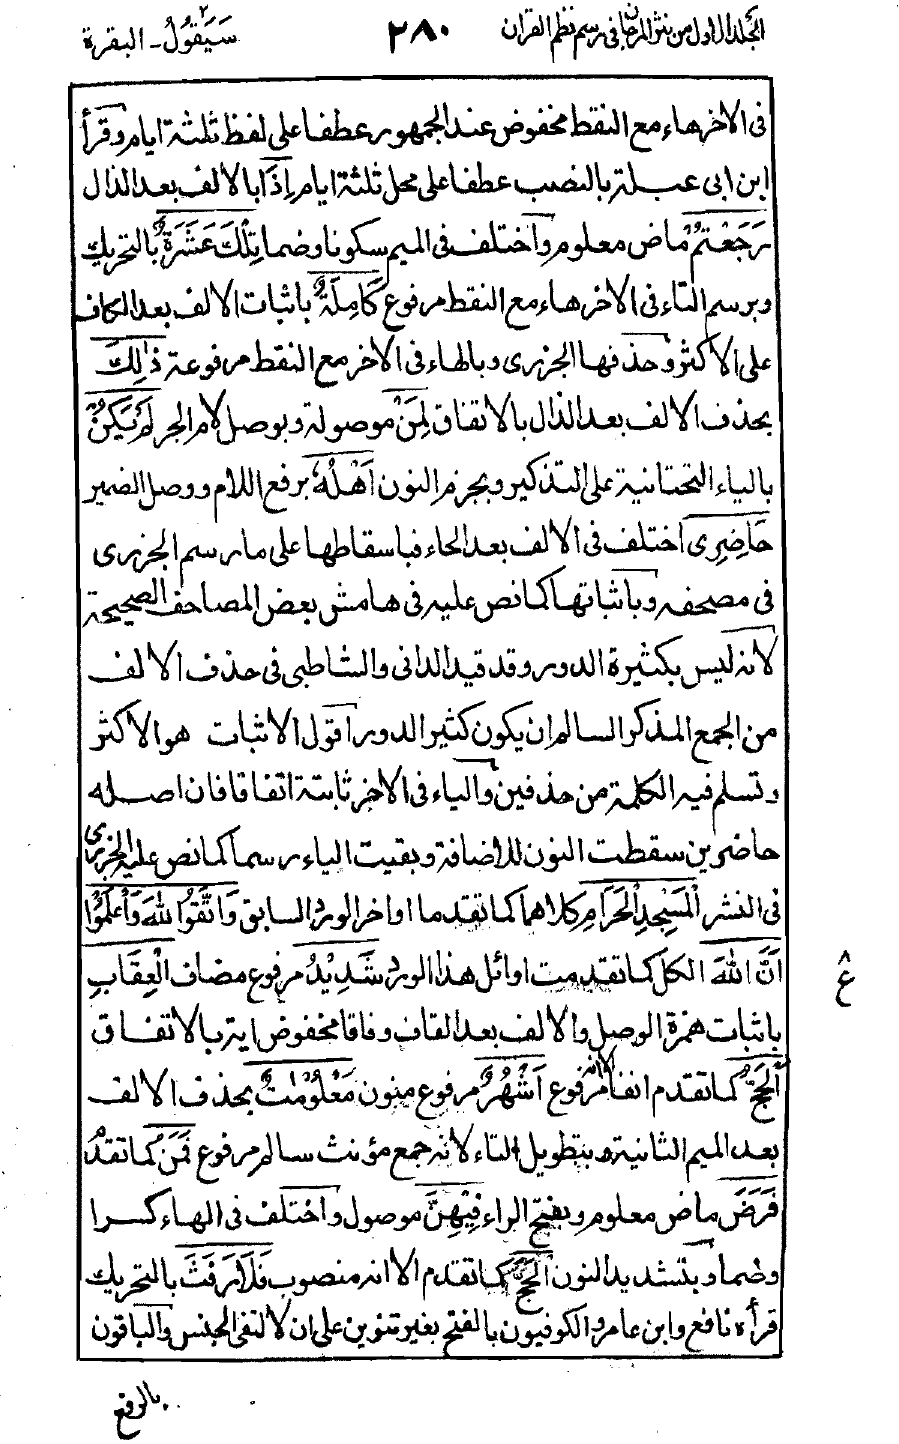 المجلد الاول من نثر المرجان فى رسم نظم القران ٢٨٠ سَيَقُولُ ٢ - البقرة
فى الاخر هاء مع النقط مخفوض عند الجمهور عطفا على لفظ ثلثة ايام وقرأ
ابن ابى عبلة بالنصب عطفا على محل ثلثة ايام اِذَا بالالف بعد الذال
رَجَعْتُمْ ماض معلوم واختلف فى الميم سكونا وضما تِلْكَ عَشَرَةٌ بالتحريك
وبرسم التاء فى الاخر هاء مع النقط مرفوع كَامِلَةٌ باثبات الالف بعد الكاف
على الاكثر وحذفها الجزرى وبالهاء فى الاخر مع النقط مرفوعة ذٰلِكَ
بحذف الالف بعد الذال بالاتفاق لِمَنْ موصولة وبوصل لام الجر لَمْ يَكُنْ
بالياء التحتانية على التذكير وبجزم النون اَهْلُهٗ برفع اللام ووصل الضمير
حَاضِرِى اختلف فى الالف بعد الحاء فباسقاطها على ما رسم الجزرى
فى مصحفه وباثباتها كما نص عليه فى هامش بعض المصاحف الصحيحة
لانه ليس بكثيرة الدور وقد قيد الدانى والشاطبى فى حذف الالف
من الجمع المذكر السالم ان يكون كثير الدور اقول الاثبات هو الاكثر
وتسلم فيه الكلمة من حذفين والياء فى الاخر ثابتة اتفاقا فان اصله
حاضرين سقطت النون للاضافة وبقيت الياء رسما كما نص عليه الجزرى
فى النشر الْمَسْجِدِ الْحَرَامِ كلاهما كما تقدما اواخر الورد السابق وَاتَّقُوا اللّٰهَ وَاعْلَمُوْا
اَنَّ اللّٰهَ الكل كما تقدمت اوائل هذا الورد شَدِيْدُ مرفوع مضاف الْعِقَابِ
باثبات همزة الوصل والالف بعد القاف وفاقا مخفوض اية بالاتفاق
اَلْحَجُّ كما تقدم انفا الا انه مرفوع اَشْهُرٌ مرفوع منون مَعْلُوْمٰتٌ بحذف الالف
بعد الميم الثانية وبتطويل التاء لانه جمع مؤنث سالم مرفوع فَمَنْ كما تقدم
فَرَضَ ماض معلوم وبفتح الراء فِيْهِنَّ موصول واختلف فى الهاء كسرا
وضما وبتشديد النون الْحَجَّ كما تقدم الا انه منصوب فَلَا رَفَثَ بالتحريك
قرأه نافع وابن عامر والكوفيون بالفتح بغير تنوين على ان لا لنفى الجنس والباقون
بالرفع
٨
ع